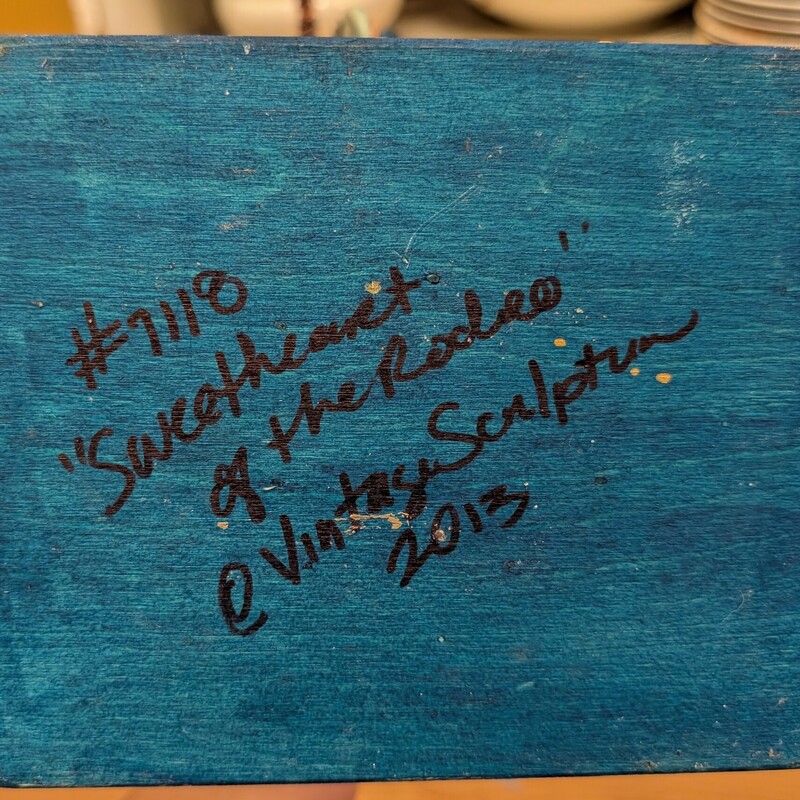 #7118
"Sweetheart
of the Rodeo"
@VintageSculpture
2013